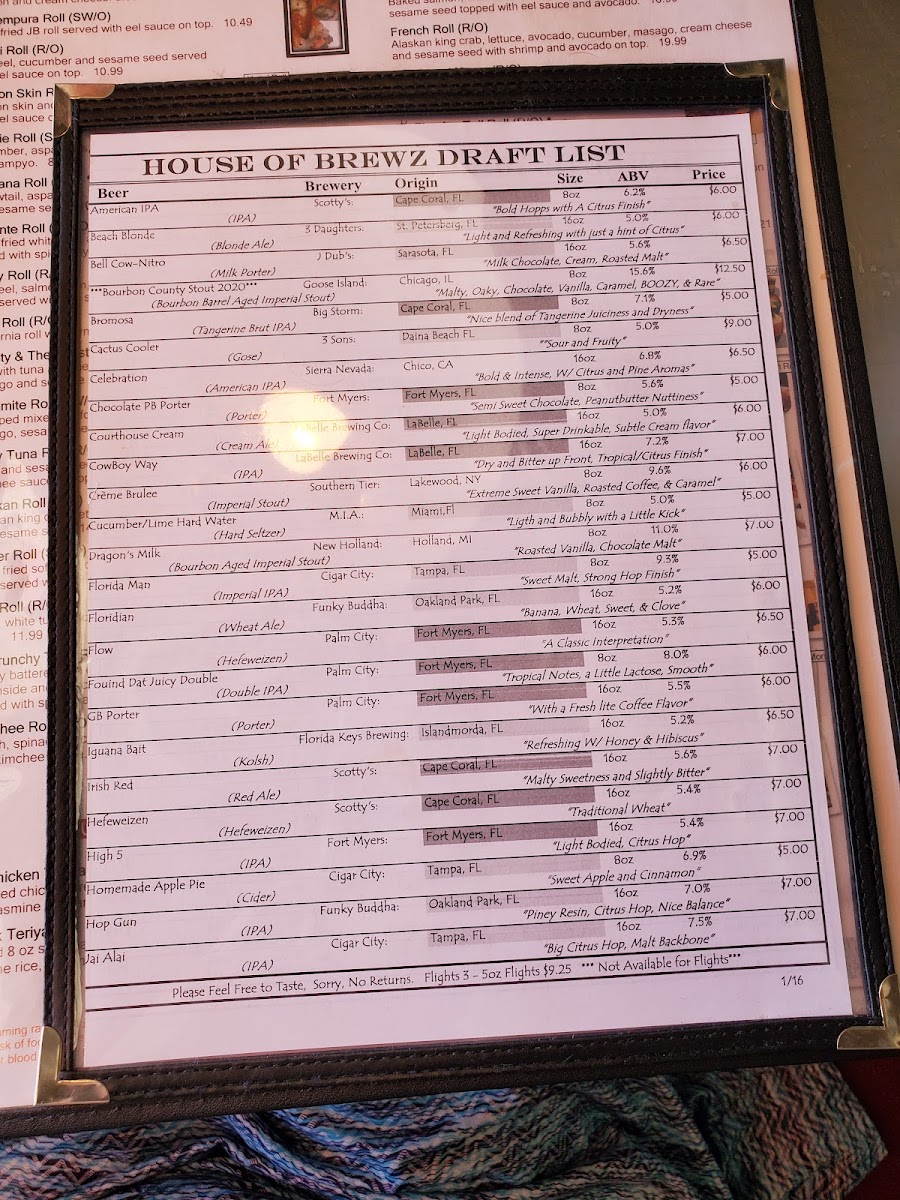 empura Roll (SW/O)
fried JB roll served with eel sauce on top. 10.49
i Roll (R/O)
eel, cucumber and sesame seed served
eel sauce on top. 10.99
sesame seed topped with eel sauce and avocado.
French Roll (R/O)
Alaskan king crab, lettuce, avocado, cucumber, masago, cream cheese
and sesame seed with shrimp and avocado on top. 19.99
HOUSE OF BREWZ DRAFT LIST
Beer Brewery Origin Size ABV Price
American IPA Scotty's: Cape Coral, FL 8oz 6.2% $6.00
(IPA) "Bold Hopps with A Citrus Finish"
Beach Blonde 3 Daughters: St. Petersberg, FL 16oz 5.0% $6.00
(Blonde Ale) "Light and Refreshing with just a hint of Citrus"
Bell Cow-Nitro J Dub's: Sarasota, FL 16oz 5.6% $6.50
(Milk Porter) "Milk Chocolate, Cream, Roasted Malt"
***Bourbon County Stout 2020*** Goose Island: Chicago, IL 8oz 15.6% $12.50
(Bourbon Barrel Aged Imperial Stout) "Malty, Oaky, Chocolate, Vanilla, Caramel, BOOZY, & Rare"
Bromosa Big Storm: Cape Coral, FL 8oz 7.1% $5.00
(Tangerine Brut IPA) "Nice blend of Tangerine Juiciness and Dryness"
Cactus Cooler 3 Sons: Daina Beach FL 8oz 5.0% $9.00
(Gose) ""Sour and Fruity"
Celebration Sierra Nevada: Chico, CA 16oz 6.8% $6.50
(American IPA) "Bold & Intense, W/ Citrus and Pine Aromas"
Chocolate PB Porter Fort Myers: Fort Myers, FL 8oz 5.6% $5.00
(Porter) "Semi Sweet Chocolate, Peanutbutter Nuttiness"
Courthouse Cream LaBelle Brewing Co: LaBelle, FL 16oz 5.0% $6.00
(Cream Ale) "Light Bodied, Super Drinkable, Subtle Cream flavor"
CowBoy Way LaBelle Brewing Co: LaBelle, FL 16oz 7.2% $7.00
(IPA) "Dry and Bitter up Front, Tropical/Citrus Finish"
Crème Brulee Southern Tier: Lakewood, NY 8oz 9.6% $6.00
(Imperial Stout) "Extreme Sweet Vanilla, Roasted Coffee, & Caramel"
Cucumber/Lime Hard Water M.I.A.: Miami,Fl 8oz 5.0% $5.00
(Hard Seltzer) "Ligth and Bubbly with a Little Kick"
Dragon's Milk New Holland: Holland, MI 8oz 11.0% $7.00
(Bourbon Aged Imperial Stout) "Roasted Vanilla, Chocolate Malt"
Florida Man Cigar City: Tampa, FL 8oz 9.3% $5.00
(Imperial IPA) "Sweet Malt, Strong Hop Finish"
Floridian Funky Buddha: Oakland Park, FL 16oz 5.2% $6.00
(Wheat Ale) "Banana, Wheat, Sweet, & Clove"
Flow Palm City: Fort Myers, FL 16oz 5.3% $6.50
(Hefeweizen) "A Classic Interpretation"
Fouind Dat Juicy Double Palm City: Fort Myers, FL 8oz 8.0% $6.00
(Double IPA) "Tropical Notes, a Little Lactose, Smooth"
GB Porter Palm City: Fort Myers, FL 16oz 5.5% $6.00
(Porter) "With a Fresh lite Coffee Flavor"
Iguana Bait Florida Keys Brewing: Islandmorda, FL 16oz 5.2% $6.50
(Kolsh) "Refreshing W/ Honey & Hibiscus"
Irish Red Scotty's: Cape Coral, FL 16oz 5.6% $7.00
(Red Ale) "Malty Sweetness and Slightly Bitter"
Hefeweizen Scotty's: Cape Coral, FL 16oz 5.4% $7.00
(Hefeweizen) "Traditional Wheat"
High 5 Fort Myers: Fort Myers, FL 16oz 5.4% $7.00
(IPA) "Light Bodied, Citrus Hop"
Homemade Apple Pie Cigar City: Tampa, FL 8oz 6.9% $5.00
(Cider) "Sweet Apple and Cinnamon"
Hop Gun Funky Buddha: Oakland Park, FL 16oz 7.0% $7.00
(IPA) "Piney Resin, Citrus Hop, Nice Balance"
Jai Alai Cigar City: Tampa, FL 16oz 7.5% $7.00
(IPA) "Big Citrus Hop, Malt Backbone"
Please Feel Free to Taste, Sorry, No Returns. Flights 3 – 5oz Flights $9.25 *** Not Available for Flights***
1/16